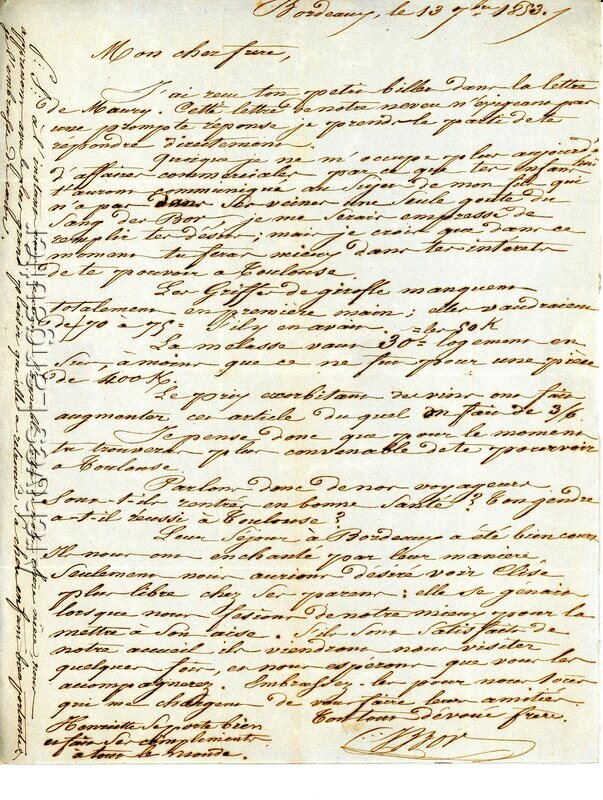 Bordeaux, le 13 7bre 1853.
Mon cher frere,
J'ai recu ton petit billet dans la lettre
de Maury. Cette lettre de notre neveu n'exigeant pas
une prompte réponse je prends le parti de te
repondre directement.
Quoique je ne m'occupe plus aujourd'hui
d'affaires commerciales par ce que tes enfans
t'auront communiqué au Sujet de mon fils qui
n'a pas dans Ses veines une Seule goute du
Sang des Bor, je me Serais empressé de
remplir tes désirs; mais je crois que dans ce
moment tu feras mieux dans tes interets
de te pouvoir à Toulouse.
Les Griffes de girofle manquent
totalement en première main; elles vaudraient
de 70 à 75= S'il y en avait. = les 50 K
La mélasse vaut 30= logement en
Sus, à moins que ce ne fut pour une pièce
de 400 K.
Le prix exorbitant des vins ont fait
augmenter cet article du quel on fait de 3/6
Je pense donc que pour le moment
tu trouveras plus convenable de te pourvoir
a Toulouse.
Parlons donc de nos voyageurs
Sont-ils rentrés en bonne Santé? Ton gendre
a-t-il réussi à Toulouse?
Leur Sejour à Bordeaux a été bien court
Ils nous ont enchanté par leur manière
Seulement nous aurions désiré voir Elisé
plus libre chez Ses parens; elle se genait
lorsque nous fesions de notre mieux pour la
mettre à Son aise. S'ils Sont Satisfaits de
notre accueil ils viendront nous visiter
quelques fois, et nous esperons que vous les
accompagnerez. Embrassez-les pour nous tous
qui me chargent de vous faire leurs amitiés.
Ton tout dévoué frere.
Henriette Se porte bien
et fait Ses complements
a tout le Monde.
Bor
P.S. à l'instant